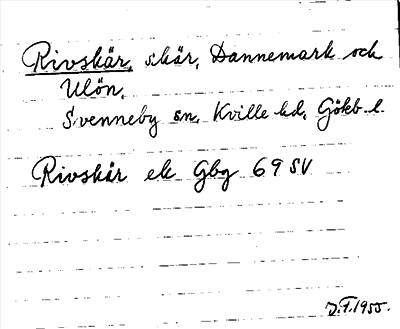 Rivskär, skär, Dannemark och
Ulön,
Svenneby sn, Kville hd, Gökb. l.
Rivskär ek Gbg 69 SV
J.F. 1955.